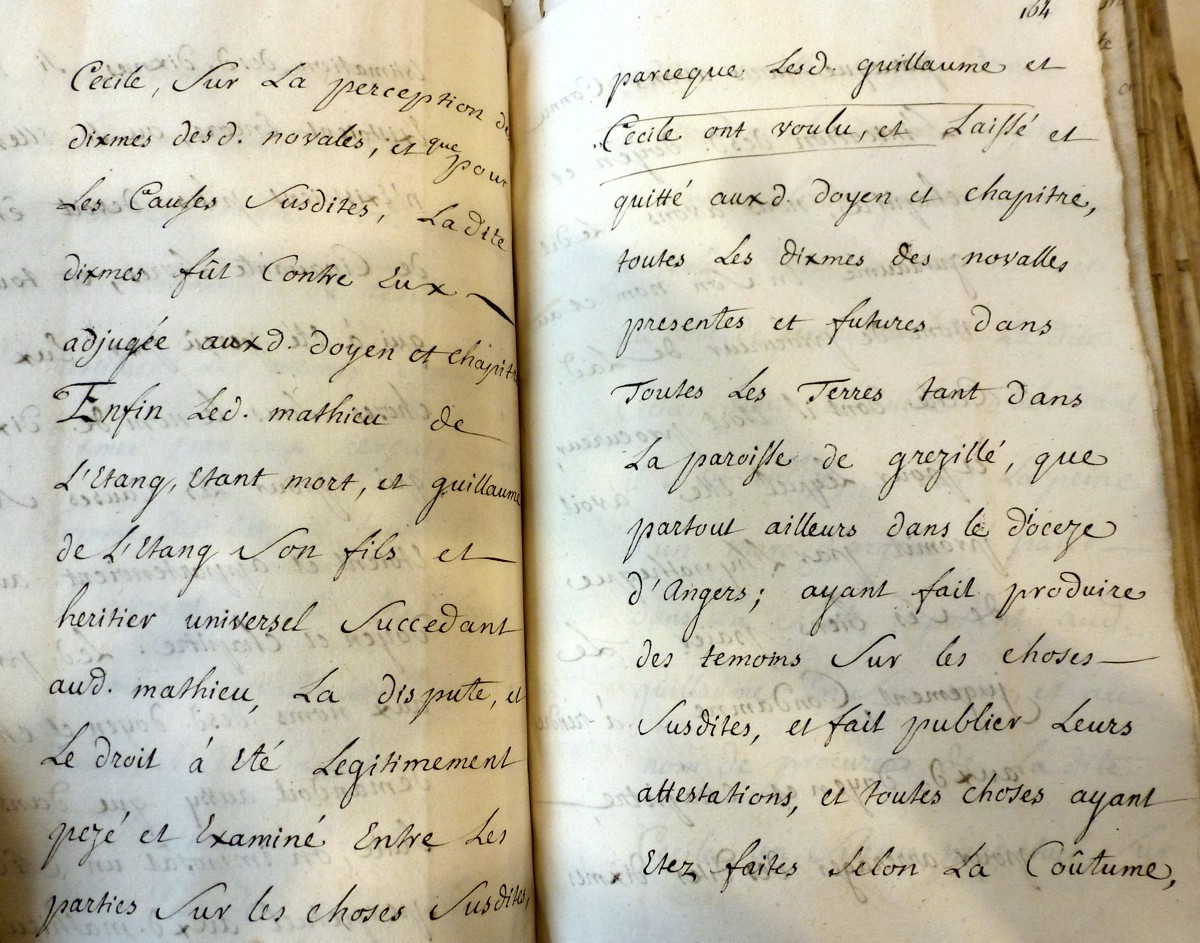 Cecile, Sur La perception de
dixmes desd. novales, et que pour
Les Causes Susdites, La dite
dixmes fût Contre Eux
adjugée auxd. Doyen et chapitre
Enfin Led. mathieu de
L'Etang, Etant mort, et guillaume
de L'Etang Son fils et
heritier universel Succedant
aud. mathieu, La dispute, et
Le droit á Eté Legitimement
pezé et Examiné Entre Les
parties Sur les choses Susdites,
164
parceque Lesd. guillaume et
Cecile ont voulu, et Laissé et
quitté auxd. Doyen et chapitre,
toutes Les dixmes des novalles
presentes et futures dans
Toutes Les Terres tant Dans
La paroisse de grezillé, que
partout ailleurs dans le dioceze
d'Angers; ayant fait produire
des temoins Sur les choses
Susdites, et fait publier Leurs
attestations, et toutes choses ayant
Etez faites Selon La Coûtume,